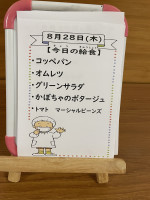 8月28日(木)
【今日の給食】
・コッペパン
・オムレツ
・グリーンサラダ
・かぼちゃのポタージュ
・トマト　マーシャルビーンズ